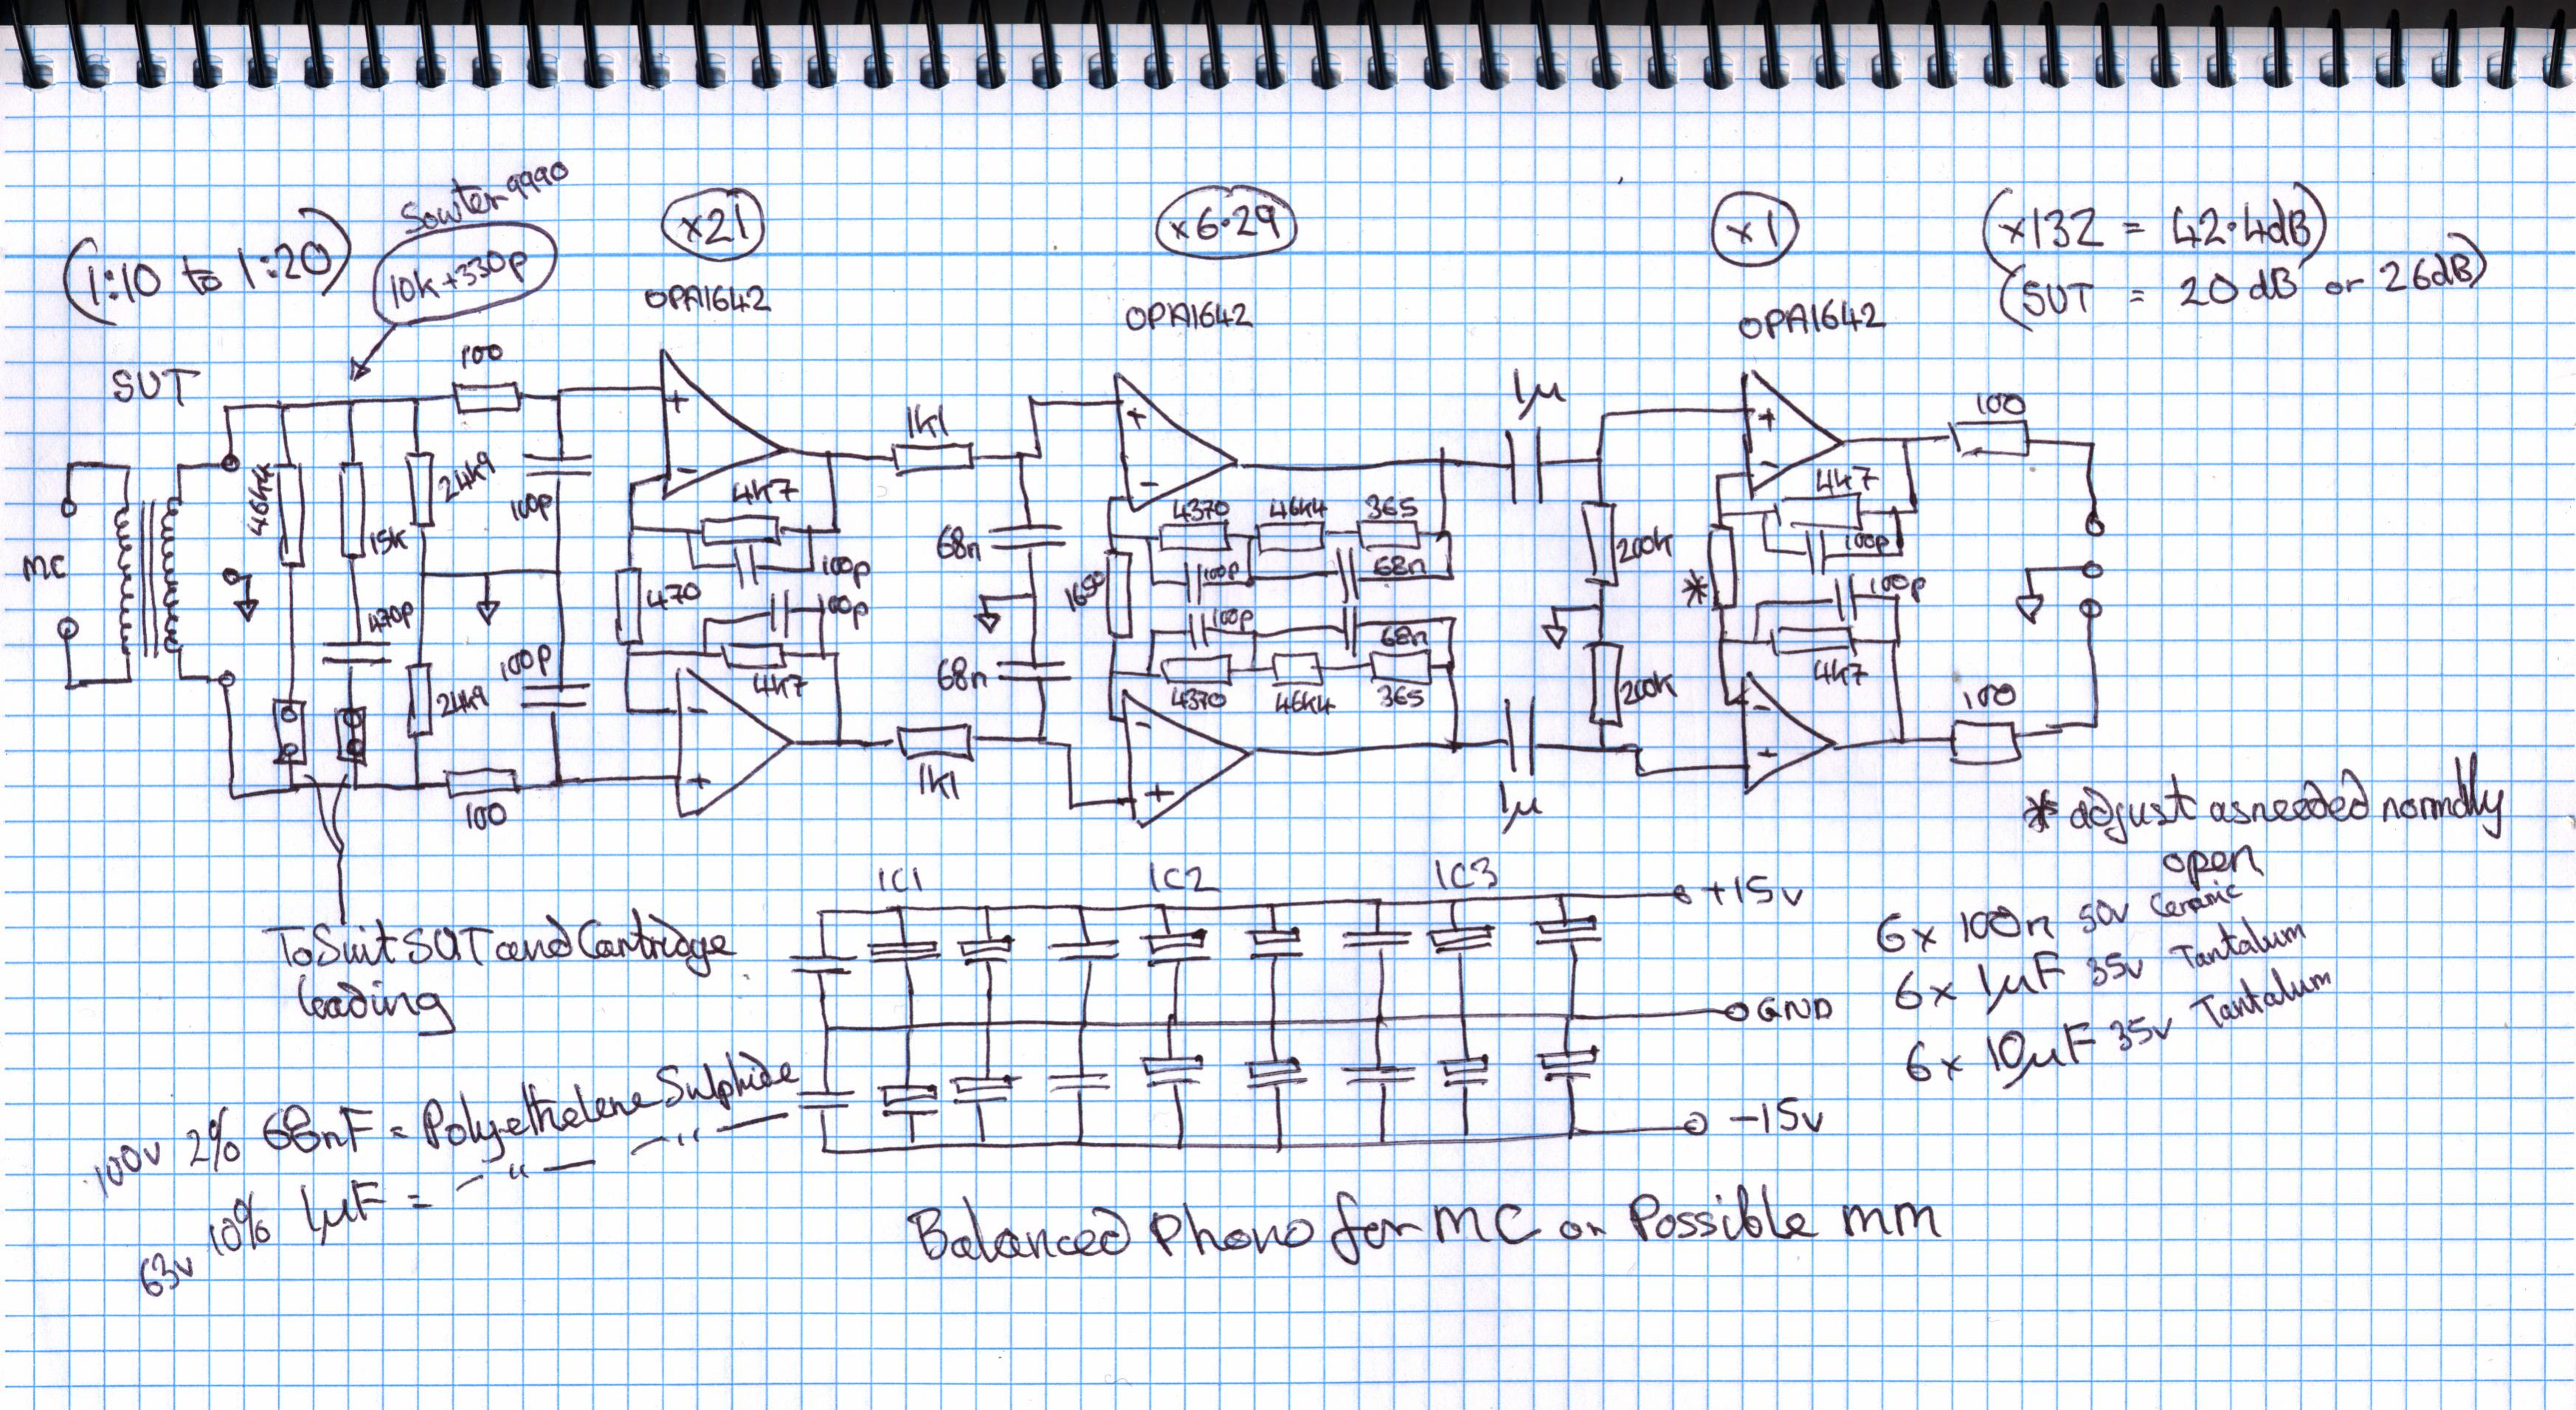 Sowter 9990
(1:10 to 1:20)
10k+330p
x21
x6.29
x1
(x132 = 42.4dB)
(SUT = 20dB or 26dB)
OPA1642
OPA1642
OPA1642
SUT
100
1k1
1μ
100
46k4
15k
24k9
100p
4k7
100p
68n
4370
46k4
365
100p
68n
200k
4k7
100p
MC
470p
470
100p
1650
100p
68n
*
100p
24k9
100p
4k7
68n
4370
46k4
365
200k
4k7
100
100
1k1
1μ
* adjust as needed normally
open
To Suit SUT and Cartridge
loading
IC1
IC2
IC3
+15v
GND
-15v
6x 100n 50v Ceramic
6x 1μF 35v Tantalum
6x 10μF 35v Tantalum
100v 2% 68nF = Polyethelene Sulphide
63v 10% 1μF = — " — — " —
Balanced Phono for MC or Possible MM